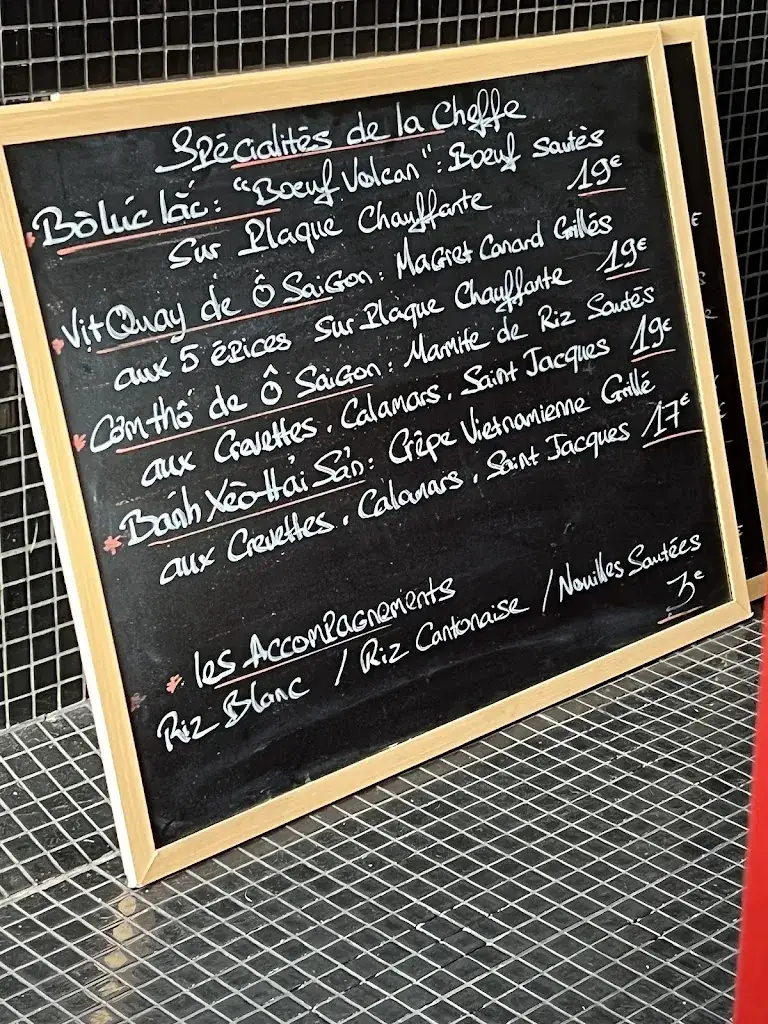 Spécialités de la Cheffe
* Bò lúc lắc: "Bœuf Volcan": Bœuf sautés
Sur Plaque Chauffante 19€
* Vịt Quay de Ô Saigon: Magret Canard Grillés
aux 5 épices Sur Plaque Chauffante 19€
* Cơm thố de Ô Saigon: Marmite de Riz Sautés
aux Crevettes, Calamars, Saint Jacques 19€
* Bánh Xèo Hải Sản: Crêpe Vietnamienne Grillé
aux Crevettes, Calamars, Saint Jacques 17€
* les Accompagnements
Riz Blanc / Riz Cantonaise / Nouilles Sautées
3€